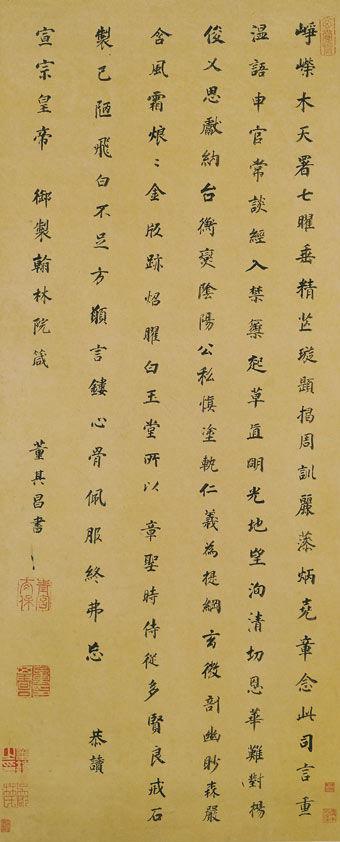 崢嶸木天署七曜垂精芷璇題揭周訓麗藻炳堯章念此司言重
溫語申官常談經入禁籞起草直明光地望洵清切恩華難對揚
俊乂思獻納台衡爕陰陽公私慎塗軌仁義為提綱玄微剖幽眇森嚴
含風霜烺〻金版跡炤曜白玉堂所以章聖時侍從多賢良戒石
製已陋飛白不足方願言鏤心骨佩服終弗忘　恭讀
宣宗皇帝　御製翰林院箴
董其昌書